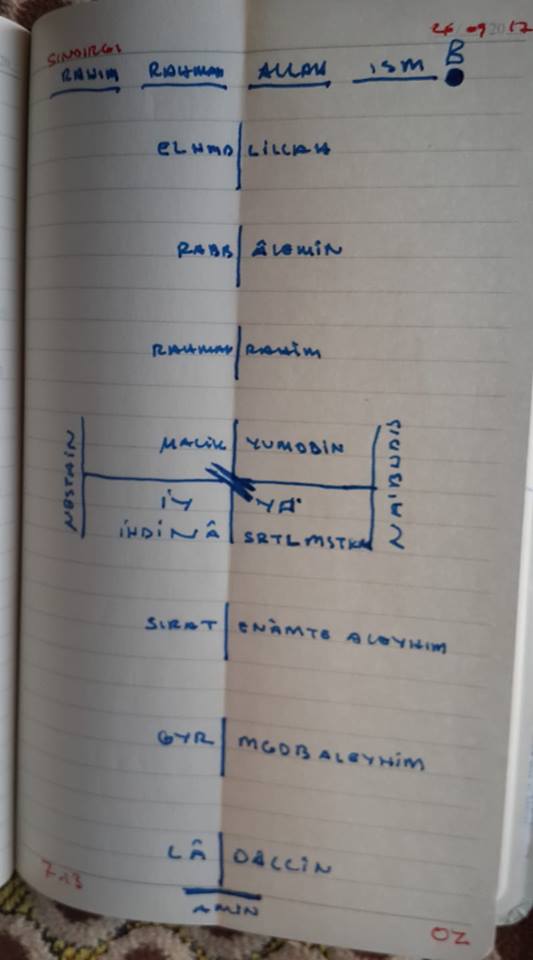 26 09 2017
SINDIRGI
RAHIM RAHMAN ALLAH ISM B
ELHMD LİLLAH
RABB ÂLEMİN
RAHMAN RAHİM
MALİK YUMDDİN
NESTAİN
İY YA
İHDİNÂ SRTLMSTKM
SIRAT ENÂMTE ALEYHIM
GYR MGDB ALEYHİM
LÂ DALLİN
AMİN
7.13
OZ